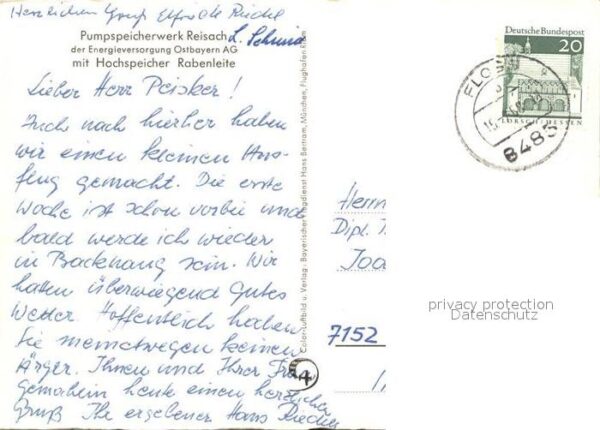 Herzlichen Gruß Elfriede Riedel
Pumpspeicherwerk Reisach
der Energieversorgung Ostbayern AG
mit Hochspeicher Rabenleite
Lieber Herr Peisker!
Auch nach hierher haben
wir einen kleinen Aus-
flug gemacht. Die erste
Woche ist schon vorbei und
bald werde ich wieder
in Backnang sein. Wir
hatten überwiegend gutes
Wetter. Hoffentlich haben
Sie meinetwegen keinen
Ärger. Ihnen und Ihrer Frau
gemahlin heute einen herzlichen
Gruß Ihr ergebener Hans Riedel
Color-Luftbild u. Verlag: Bayerischer Flugdienst Hans Bertram, München, Flughafen Riem
4
Deutsche Bundespost
20
LORSCH/HESSEN
FLOSS
8485
Herrn
Dipl.
7152
privacy protection
Datenschutz